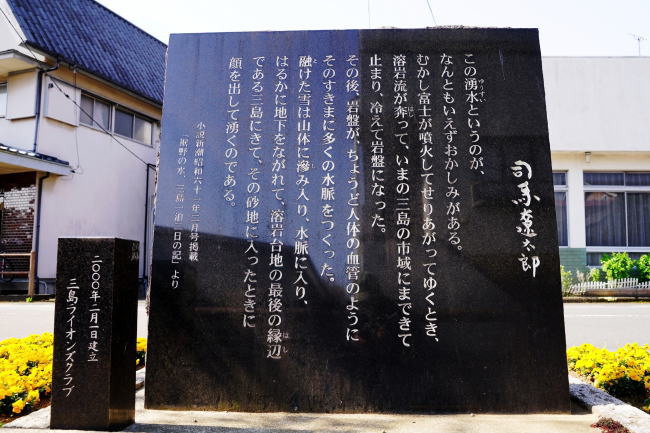 司馬遼太郎
この湧水というのが、
なんともいえずおかしみがある。
むかし富士が噴火してせりあがってゆくとき、
溶岩流が奔って、いまの三島の市域にまできて
止まり、冷えて岩盤になった。
その後、岩盤が、ちょうど人体の血管のように
そのすきまに多くの水脈をつくった。
融けた雪は山体に滲み入り、水脈に入り、
はるかに地下をながれて、溶岩台地の最後の縁辺
である三島にきて、その砂地に入ったときに
顔を出して湧くのである。
小説新潮昭和六十一年二月号掲載
「裾野の水、三島一泊二日の記」より
二〇〇〇年二月一日建立
三島ライオンズクラブ